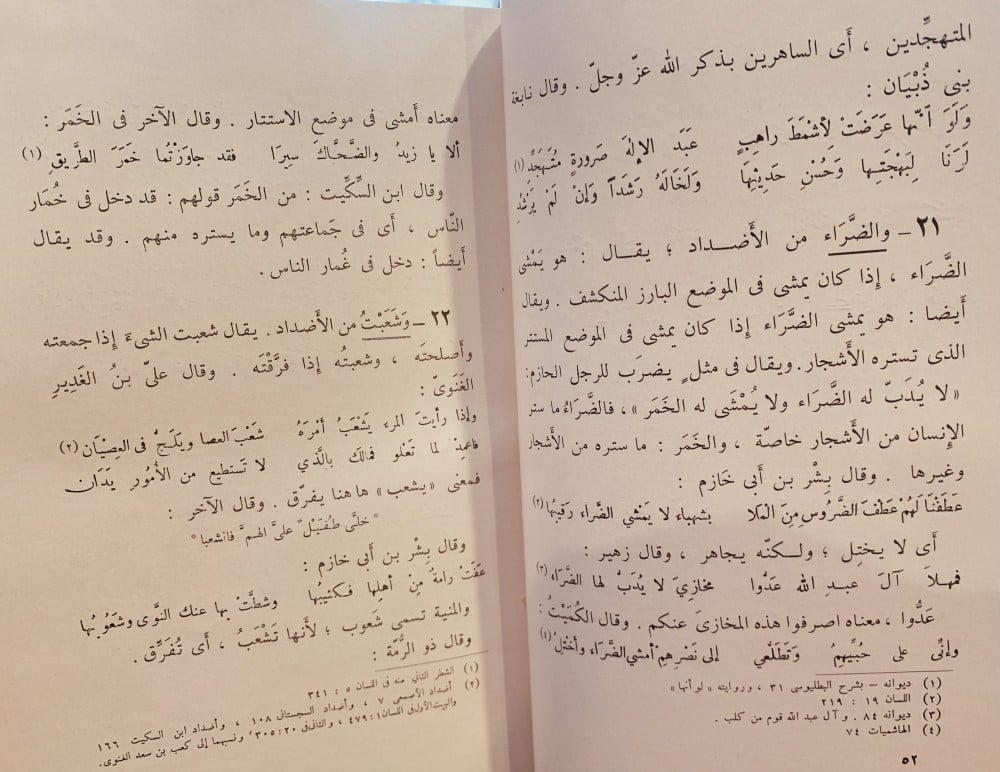 المتهجِّدين ، أَى الساهرين بذكر الله عزّ وجلّ . وقال نابغة
بنى ذُبْيَان :
وَلَوَ آنّها عَرَضَتْ لِأَشْمَطَ راهِبٍ عَبَدَ الإِلٰهَ صَرورةٍ مُتَهَجِّدِ (١)
لَرَنَا لِبَهْجَتِها وَحُسْنِ حَدِيثِها وَلَخَالَهُ رَشَدًا وَإِنْ لَمْ يَرْشُدِ
٢١ – والضَّرَاء من الأَضداد ؛ يقال : هو يَمْشى
الضَّرَاء ، إِذا كان يمشى فى الموضع البارز المنكشف . ويقال
أَيضا : هو يمشى الضَّرَاء إِذا كان يمشى فى الموضع المستتر
الذى تستره الأَشجار . ويقال فى مثلٍ يضرَب للرجل الحازم:
«لا يُدَبّ له الضَّرَاء ولا يُمْشَى له الخَمَر» ، فالضَّرَاءُ ما ستر
الإِنسان من الأَشجار خاصّة ، والخَمَر : ما ستره من الأَشجار
وغيرها . وقال بِشْر بن أَبى خازم :
عَطَفْنَا لهُم عَطْفَ الضَّرُوسِ مِنَ المَلَا بشهباءَ لا يَمْشي الضَّراء رَقيبُها (٢)
أَى لا يختِل ؛ ولـكنّه يجاهر ، وقال زهير :
فمهلاً آلَ عبدِ الله عَدُّوا مخازِيَ لا يُدَبُّ لها الضَّرَاء (٣)
عَدُّوا ، معناه اصرفوا هذه المخازىَ عنكم . وقال الكُمَيْتُ :
وإنّى على حُبِّيهِمُ وَتَطَلُّعي إلى نَصْرِهِمْ أمشي الضَّرَاء وأختِلُ (٤)
(١) ديوانه – بشرح البطليوسى ٣١ ، وروايته « لو أنها »
(٢) اللسان ١٩ : ٢١٩
(٣) ديوانه ٨٤ . وآل عبد الله قوم من كلب .
(٤) الهاشميات ٧٤
٥٢
معناه أَمشى فى موضع الاستتار . وقال الآخر فى الخَمَر :
ألا يا زيدُ والضَّحَّاكَ سِيرَا فقد جاوَزْتُما خَمَرَ الطَّريقِ (١)
وقال ابن السِّكِّيت : من الخَمَر قولهم : قد دخل فى خُمَار
النّاس ، أَى فى جَماعتهم وما يستره منهم . وقد يقال
أَيضاً : دخل فى غُمار الناس .
٢٢ – وَشَعَبْتُ من الأَضداد . يقال شعبت الشىءَ إِذا جمعته
وأَصلحتَه ، وشعبتُه إِذا فرَّقْتَه . وقال علىّ بنُ الغَدِيرِ
الغَنَوىّ :
وإذا رأيتَ المرء يَشْعَبُ أمْرَهُ شَعْبَ العصا ويَلَجُّ فى العِصْيَان (٢)
فاعمِدْ لما تَعْلو فمالَكَ بالَّذي لا تَستطيع من الأُمُورِ يَدَان
فمعنى «يشعب» هاهنا يفرّق . وقال الآخر :
* خلَّى طُفَيْلٌ علىَّ الهمَّ فانشعبا *
وقال بِشْر بن أَبى خازم :
عَفَتْ رامةٌ مِنْ أهلِها فـكثيبُها وشطَّتْ بها عنك النَّوى وشعُوبُها
والمنية تسمى شَعوب ؛ لأَنها تَشْعَبُ ، أَى تُفَرِّق .
وقال ذو الرُّمّة :
(١) الشطر الثانى منه فى اللسان ٥ : ٣٤١
(٢) أضداد الأصمعى ٧ ، وأضداد السجستانى ١٠٨ ، وأضداد ابن السكيت ١٦٦
والبيت الأول فى اللسان ١ : ٤٧٩ ، والثانى فى ٢٠ : ٣٠٥ ، ونسبهما إلى كعب بن سعد الغنوى.